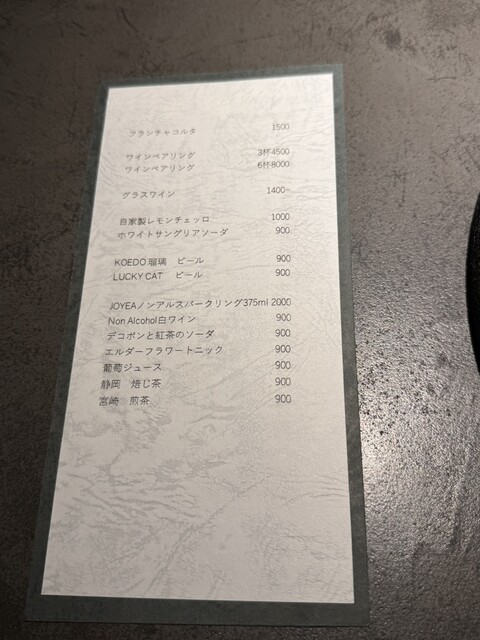 フランチャコルタ 1500
ワインペアリング 3杯4500
ワインペアリング 6杯8000
グラスワイン 1400~
自家製レモンチェッロ 1000
ホワイトサングリアソーダ 900
KOEDO瑠璃 ビール 900
LUCKY CAT ビール 900
JOYEAノンアルスパークリング375ml 2000
Non Alcohol白ワイン 900
デコポンと紅茶のソーダ 900
エルダーフラワートニック 900
葡萄ジュース 900
静岡 焙じ茶 900
宮崎 煎茶 900